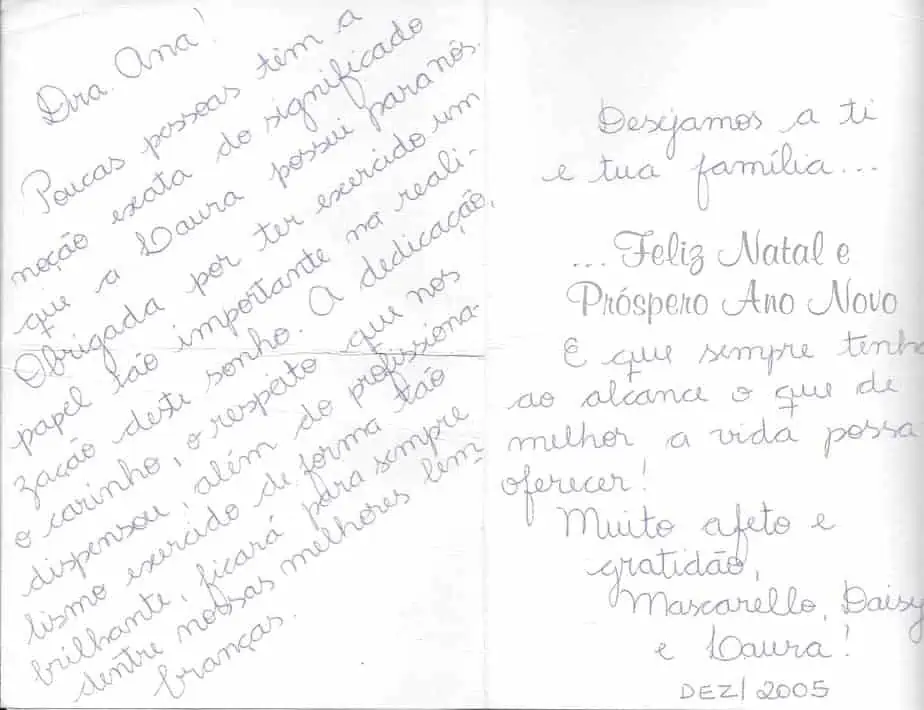 Dra. Ana!
Poucas pessoas têm a
noção exata do significado
que a Laura possui para nós.
Obrigada por ter exercido um
papel tão importante na reali-
zação deste sonho. A dedicação,
o carinho, o respeito que nos
dispensou, além do profissiona-
lismo exercido de forma tão
brilhante, ficará para sempre
dentre nossas melhores lem
branças.
Desejamos a ti
e tua família...
... Feliz Natal e
Próspero Ano Novo
E que sempre tenha
ao alcance o que de
melhor a vida possa
oferecer!
Muito afeto e
gratidão,
Mascarello, Daisy
e Laura!
DEZ/2005